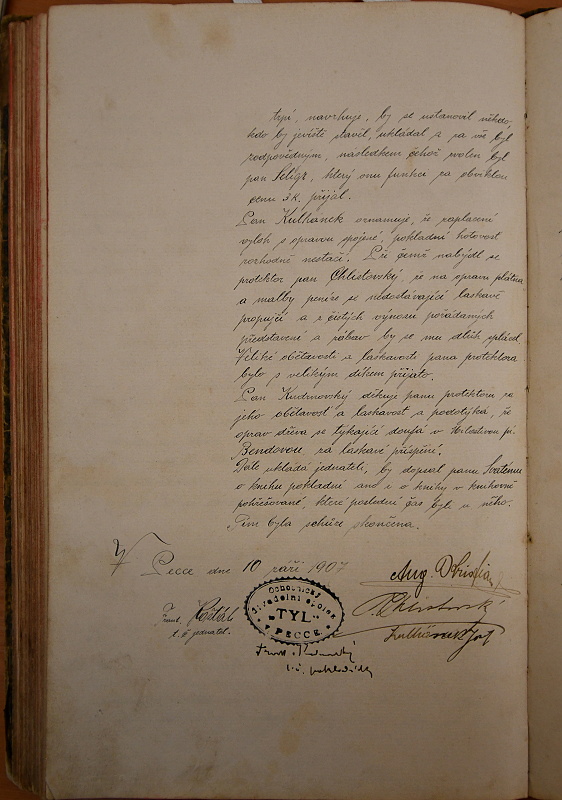 trpí, navrhuje, by se ustanovil někdo,
kdo by jeviště stavěl, ukládal a za vše byl
zodpovědným, následkem čehož zvolen byl
pan Seligr, který onu funkci za obvyklou
cenu 3 K. přijal.
Pan Kulhanek oznamuje, že zaplacení
výloh s opravou spojené, pokladní hotovost
rozhodně nestačí. Při čemž nabýdl se
protektor pan Chlistovský, že na opravu plátna
a malby peníze se nedostávající laskavě
propujčí a z čistých výnosů pořádaných
představení a zábav by se mu dluh splácel.
Veliké obětavosti a laskavosti pana protektora
bylo s velikým díkem přijato.
Pan Kudrnovský děkuje panu protektoru za
jeho obětavost a laskavost a podotýká, že
oprav dřeva se týkající doufá v Milostivou pí
Bendovou, za laskavé přispění.
Dále ukládá jednateli, by dopsal panu
o knihu pokladní ano i o knihy v knihovně
pohřešované, které poslední čas byly u něho.
Tím byla schůze skončena.
V Pecce dne 10 září 1907
Aug.
Ochotnický
divadelní spolek
"TYL"
v PECCE
Chlistovský
Frant.
t. č. jednatel.
Kulhánek Jos
t. č. pokladník